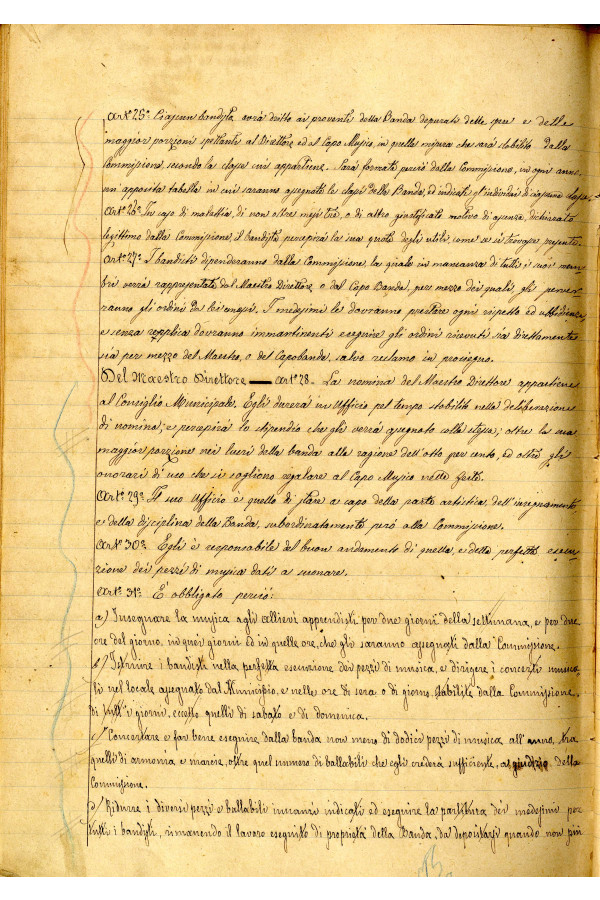 Art.° 25.° Ciascun bandista avrà dritto ai proventi della Banda depurati delle spese e delle
maggiori porzioni spettante al Direttore ed al Capo Musica, in quella misura che sarà stabilita dalla
Commissione, secondo la classe cui appartiene. Sarà formata perciò dalla Commissione, in ogni anno
un apposita tabella in cui saranno assegnate le classi della Banda, ed indicati gl'individui di ciascuna classe.
Art.° 26.° In caso di malattia, di non oltre mesi tre, o di altro giustificato motivo di assenza, dichiarato
legittimo dalla Commissione, il bandista percepirà la sua quota degli utili, come se si trovasse presente.
Art.° 27.° I bandisti dipenderanno dalla Commissione, la quale in mancanza di tutti i suoi mem-
bri verrà rappresentata dal Maestro Direttore, o dal Capo Banda, per mezzo dei quali, gli perver-
ranno gli ordini da lei emessi. I medesimi le dovranno prestare ogni rispetto ed ubbidienza,
e senza replica dovranno immantinenti eseguire gli ordini ricevuti sia direttamente
sia per mezzo del Maestro, o del Capobanda, salvo reclamo in prosieguo.
Del Maestro Direttore — Art.° 28. La nomina del Maestro Direttore appartiene
al Consiglio Municipale. Egli durerà in Ufficio pel tempo stabilito nella deliberazione
di nomina; e percepirà lo stipendio che gli verrà assegnato colla stessa; oltre la sua
maggior porzione nei lucri della banda alla ragione dell'otto per cento, ed oltre gli
onorari di uso che si sogliono regalare al Capo Musica nelle feste.
Art.° 29.° Il suo Ufficio è quello di stare a capo della parte artistica, dell'insegnamento
e della disciplina della Banda, subordinatamente però alla Commissione.
Art.° 30.° Egli è responsabile del buon andamento di quella, e della perfetta esecu-
zione dei pezzi di musica dati a suonare.
Art.° 31.° È obbligato perciò:
a) Insegnare la musica agli allievi apprendisti per due giorni della settimana, e per due
ore del giorno, in quei giorni ed in quelle ore, che gli saranno assegnati dalla Commissione.
b) Istruire i bandisti nella perfetta esecuzione dei pezzi di musica, e dirigere i concerti musica-
li nel locale assegnato dal Municipio, e nelle ore di sera o di giorno stabilite dalla Commissione,
di tutt'i giorni, eccetto quelli di sabato e di domenica.
c) Concertare e far bene eseguire dalla banda non meno di dodici pezzi di musica all'anno, tra
quelli di armonia e marcie, oltre quel numero di ballabili che egli crederà sufficiente, a giudizio della
Commissione.
d) Ridurre i diversi pezzi e ballabili innanzi indicati ed eseguire la partitura dei medesimi per
tutti i bandisti, rimanendo il lavoro eseguito di proprietà della Banda, da depositarsi quando non più